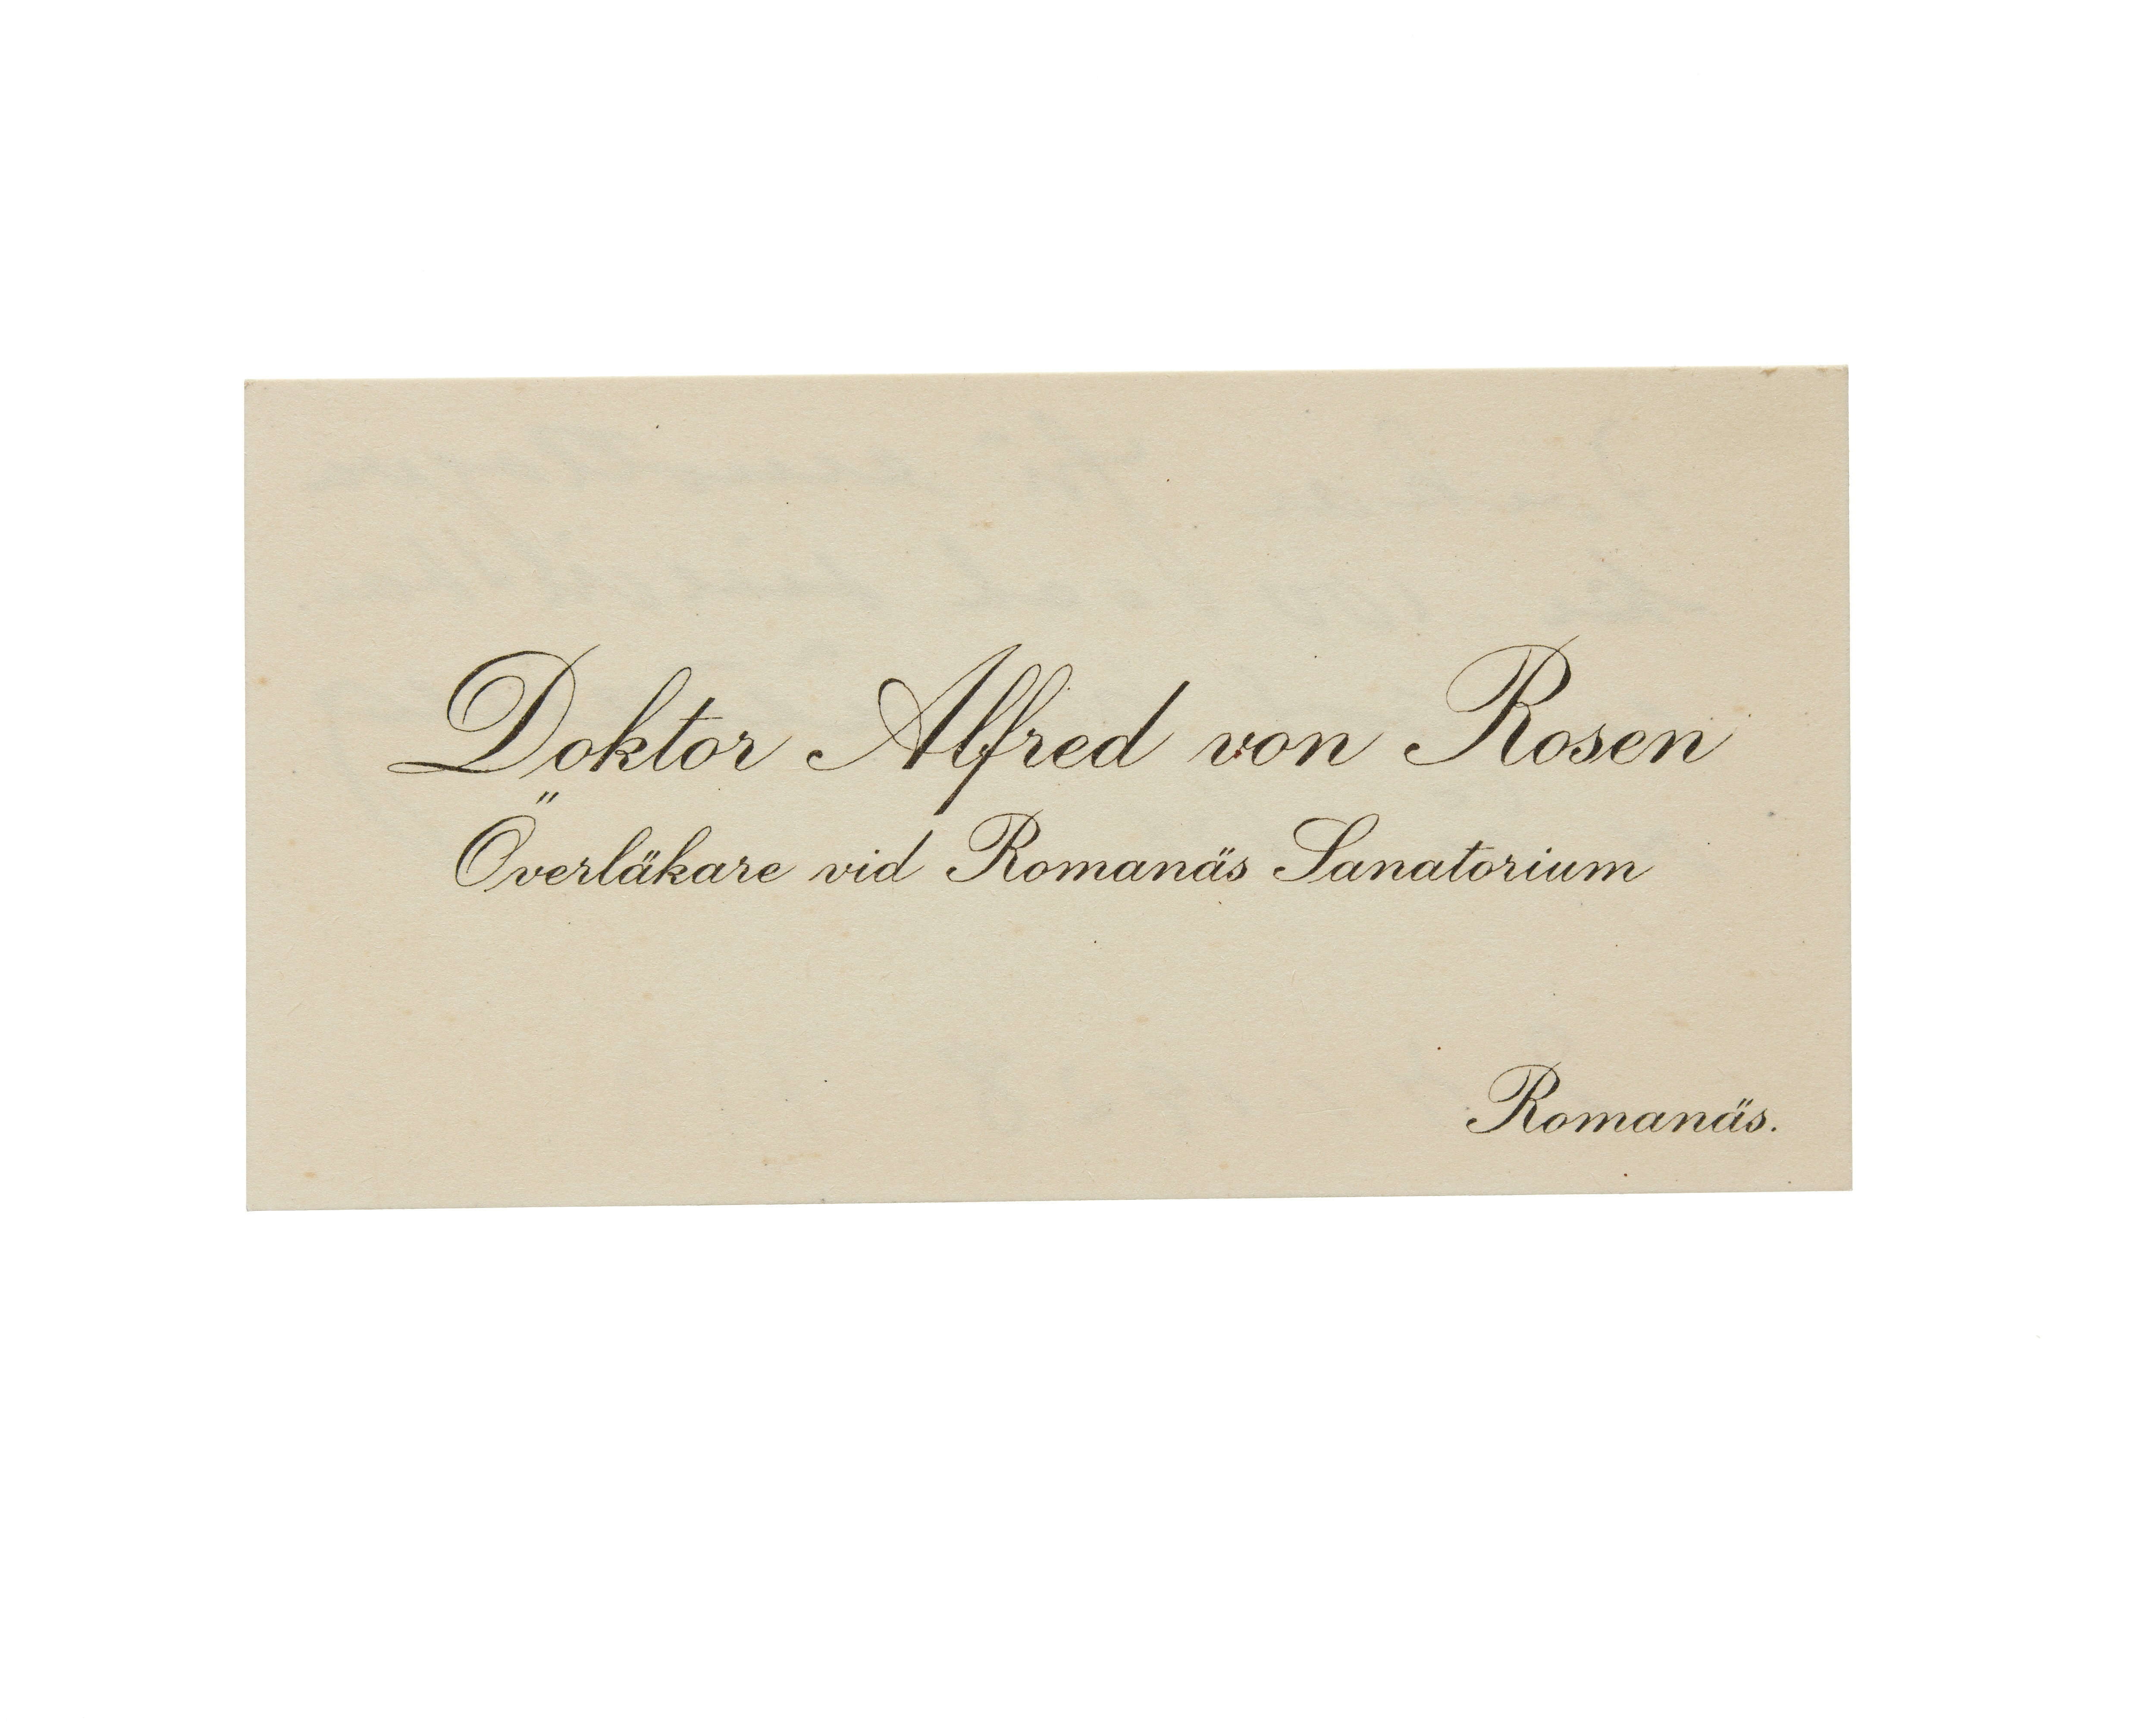 Doktor Alfred von Rosen
Överläkare vid Romanäs Sanatorium
Romanäs.